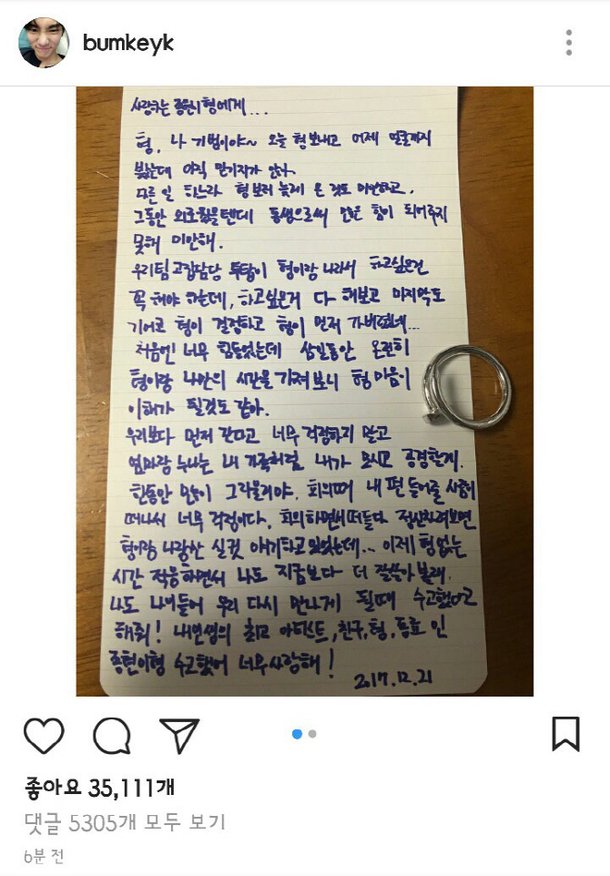 bumkeyk
사랑하는 종현이형에게...
형, 나 기범이야~ 오늘 형 보내고 어제 얼굴까지
봤는데 아직 믿기지가 않아.
푸른 일 하느라 형보러 늦게 온 것도 미안하고,
그동안 외로웠을텐데 동생으로써 많은 힘이 되어주지
못해 미안해.
우리팀 고집담당 투탑이 형이랑 나라서 하고싶은건
꼭 해야 하는데, 하고싶은거 다 해보고 마지막도
기어코 형이 결정하고 형이 먼저 가버렸네...
처음엔 너무 힘들었는데 삼일동안 온전히
형이랑 나만의 시간을 가져보니 형 마음이
이해가 될것도 같아.
우리보다 먼저 간다고 너무 걱정하지 말고
엄마랑 누나는 내 가족처럼 내가 모시고 공경할게.
한동안 많이 그리울거야. 회의때 내 편 들어줄 사람이
떠나서 너무 걱정이다. 회의하면서 떠들다 정신차려보면
형이랑 나랑만 실컷 얘기하고 있었는데... 이제 형없는
시간 적응하면서 나도 지금보다 더 잘 살아볼래.
나도 나이들어 우리 다시 만나게 될때 수고했다고
해줘! 내인생의 최고 아티스트, 친구, 형, 동료 인
종현이형 수고했어 너무사랑해!
2017.12.21
좋아요 35,111개
댓글 5305개 모두 보기
6분 전